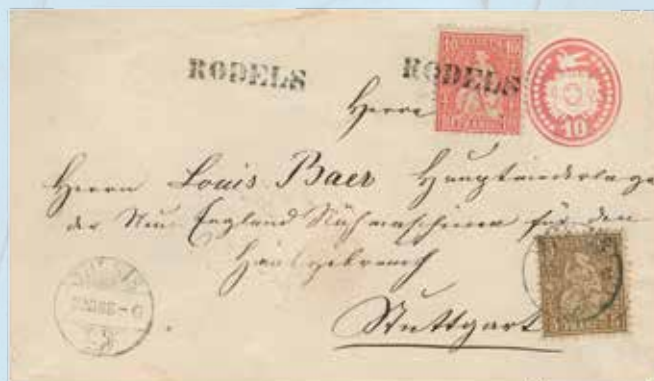 RODELS RODELS
10 10
10
Herrn
Herrn Louis Baer Hauptniederlage
der New England Nähmaschinen für den
Hausgebrauch
Stuttgart